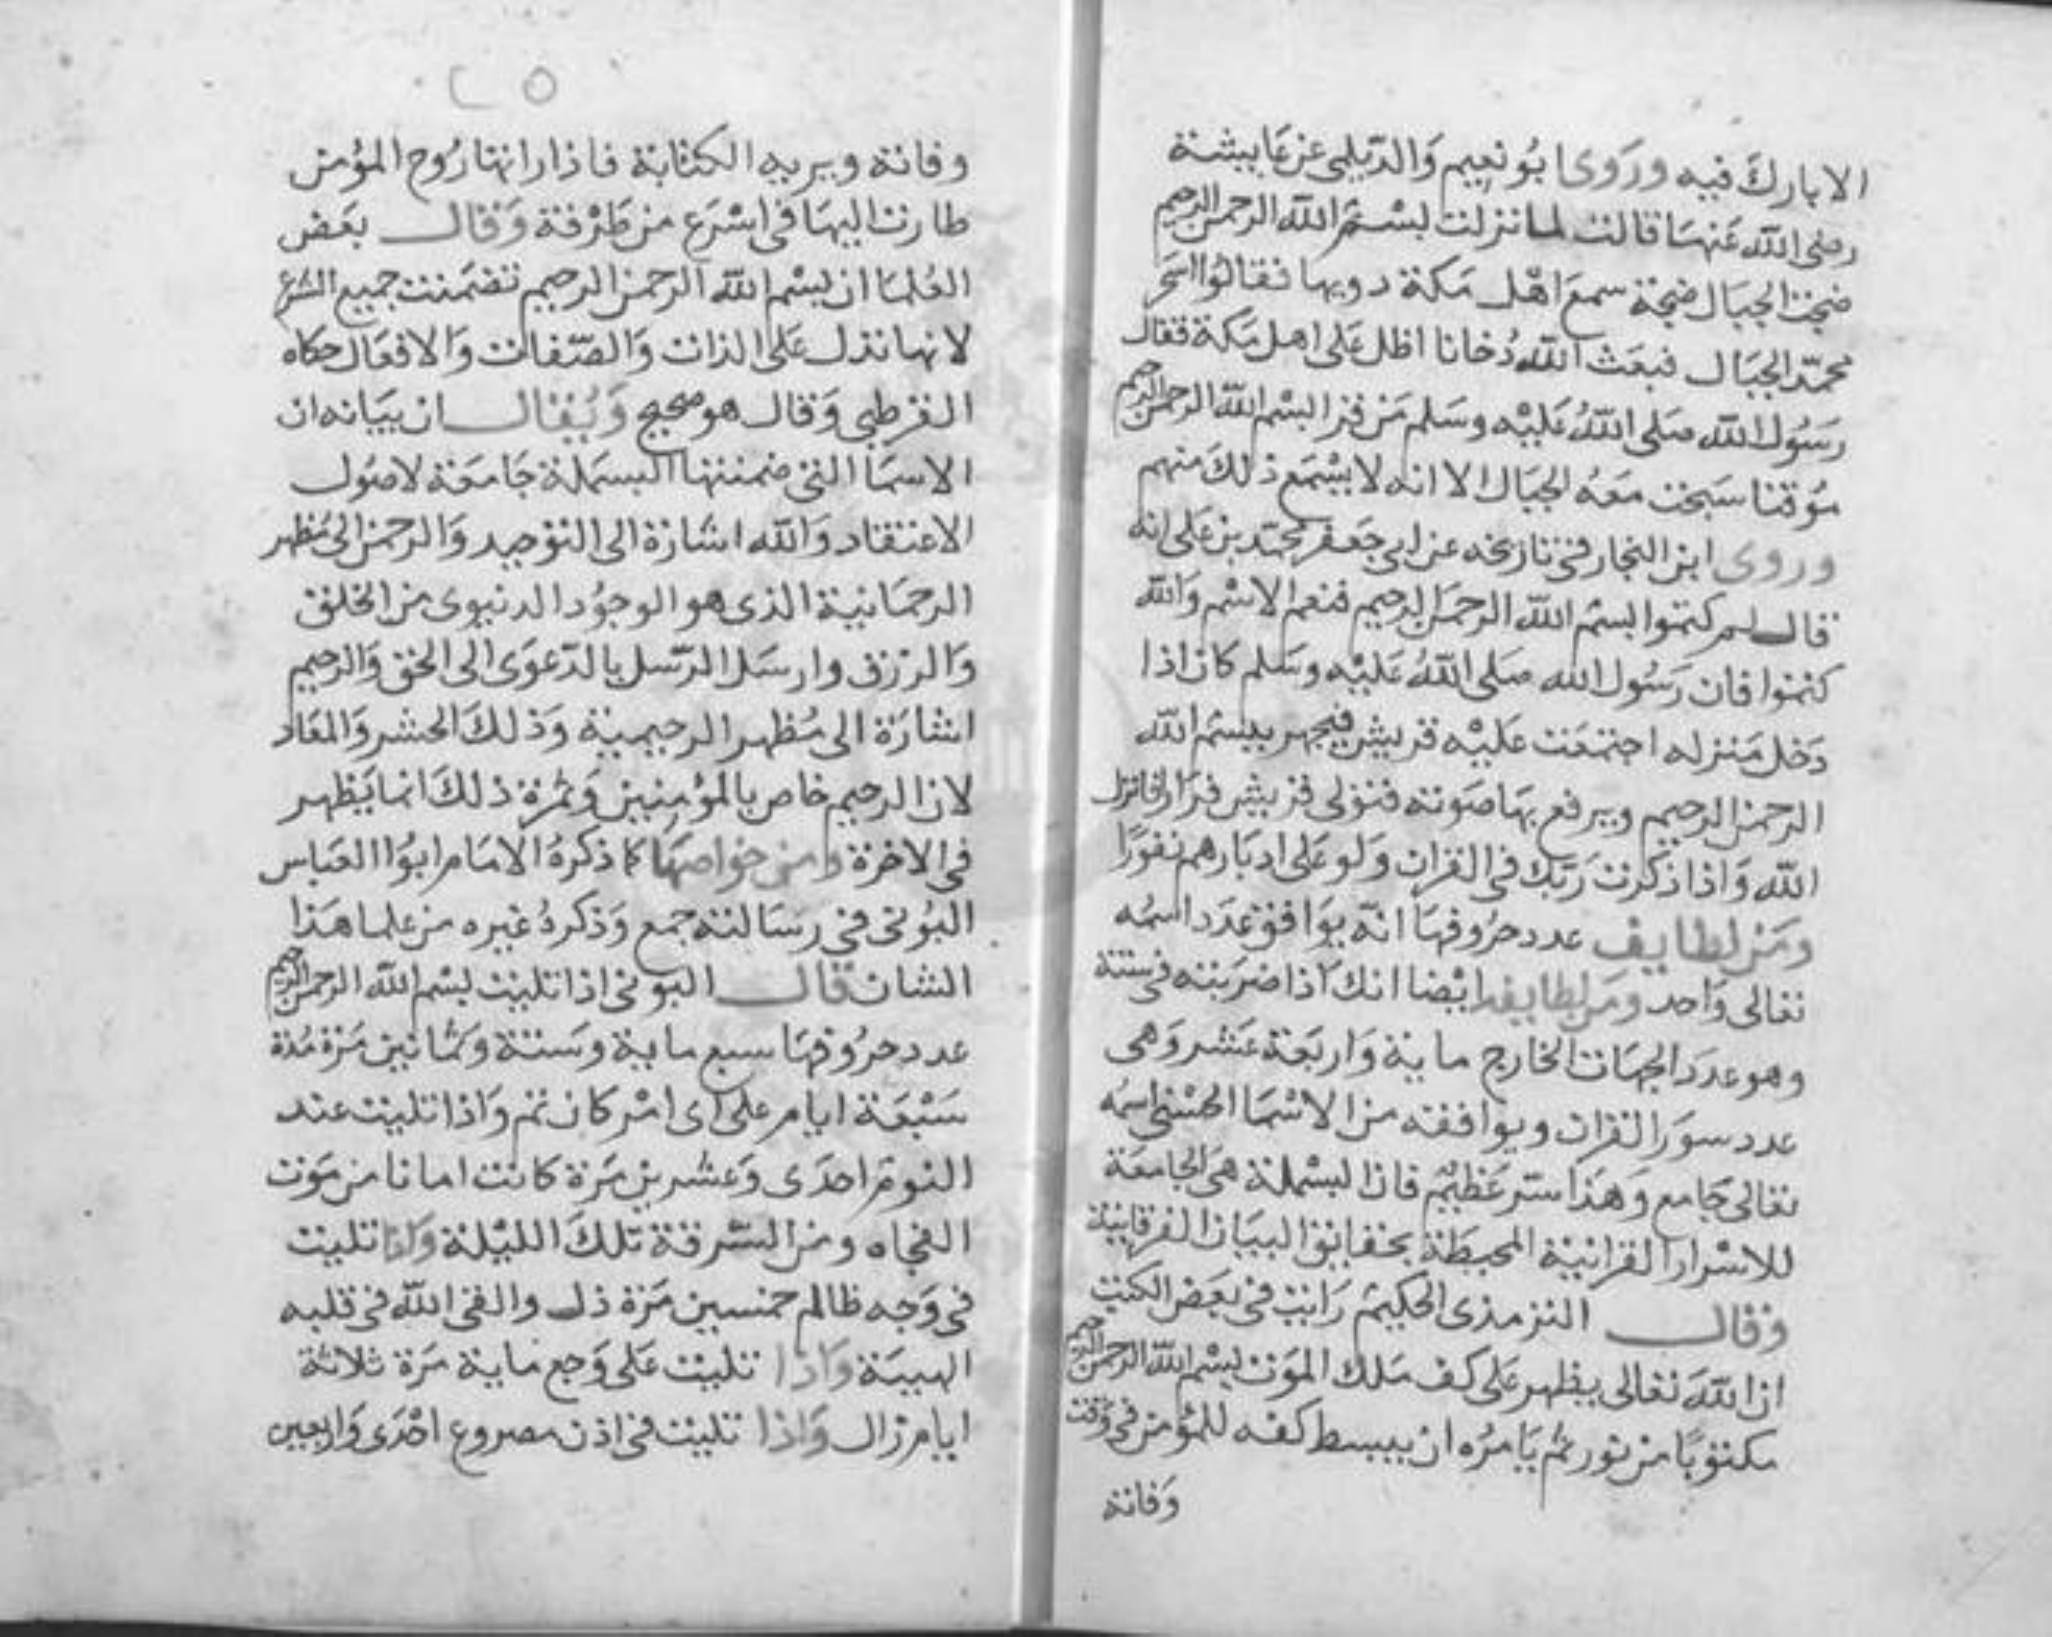 الا بارك فيه وروى ابو نعيم والديلمى عن عايشة
رضى الله عنها قالت لما نزلت بسم الله الرحمن الرحيم
ضجت الجبال ضجة سمع اهل مكة دويها فقالوا سحر
محمد الجبال فبعث الله دخانا اظل على اهل مكة فقال
رسول الله صلى الله عليه وسلم من قرا بسم الله الرحمن الرحيم
موقنا سبحت معه الجبال الا انه لا يسمع ذلك منهم
وروى ابن النجار فى تاريخه عن ابى جعفر محمد بن على انه
قال لم كتموا بسم الله الرحمن الرحيم فنعم الاسم والله
كتموا فان رسول الله صلى الله عليه وسلم كان اذا
دخل منزله اجتمعت عليه قريش فيجهر ببسم الله
الرحمن الرحيم ويرفع بها صوته فتولى قريش فرارا فانزل
الله واذا ذكرت ربك فى القران ولو على ادبارهم نفورا
ومن لطايف عدد حروفها انه يوافق عدد اسمه
تعالى واحد ومن لطايفه ايضا انك اذا ضربته فى ستة
وهو عدد الجهات الخارج ماية واربعة عشر وهى
عدد سور القران ويوافقه من الاسما الحسنى اسمه
تعالى جامع وهذا سر عظيم فان البسملة هى الجامعة
للاسرار القرانية المحيطة بحقايق البيان الفرقانية
وقال الترمذى الحكيم رايت فى بعض الكتب
ان الله تعالى يظهر على كف ملك الموت بسم الله الرحمن الرحيم
مكتوبا من نور ثم يامره ان يبسط كفه للمؤمن فى وقت
وفاته
٢٥
وفاته ويريه الكتابة فاذا راتها روح المؤمن
طارت اليها فى اسرع من طرفة وقال بعض
العلما ان بسم الله الرحمن الرحيم تضمنت جميع الشرع
لانها تدل على الذات والصفات والافعال حكاه
القرطبى وقال هو صحيح ويقال ان بيانه ان
الاسما التى ضمنتها البسملة جامعة لاصول
الاعتقاد والله اشارة الى التوحيد والرحمن الى مظهر
الرحمانية الذى هو الوجود الدنيوى من الخلق
والرزق وارسل الرسل بالدعوى الى الحق والرحيم
اشارة الى مظهر الرحيمية وذلك الحشر والمعاد
لان الرحيم خاص بالمؤمنين وثمرة ذلك انما يظهر
فى الاخرة ومن خواصها كما ذكره الامام ابوا العباس
البونى فى رسالته جمع وذكره غيره من علما هذا
الشان قال البونى اذا تليت بسم الله الرحمن الرحيم
عدد حروفها سبع ماية وستة وثمانين مرة مدة
سبعة ايام على اى امر كان تم واذا تليت عند
النوم احدى وعشرين مرة كانت امانا من موت
الفجاه ومن السرقة تلك الليلة واذا تليت
فى وجه ظالم خمسين مرة ذل والقى الله فى قلبه
الهيبة واذا تليت على وجع ماية مرة ثلاثة
ايام زال واذا تليت فى اذن مصروع احدى واربعين